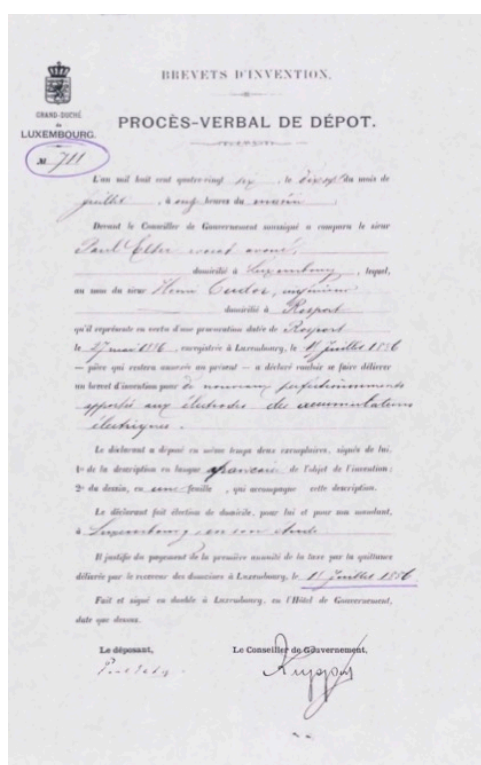 BREVETS D'INVENTION.
GRAND-DUCHÉ
de
LUXEMBOURG.
PROCÈS-VERBAL DE DÉPOT.
№ 711
L'an mil huit cent quatre-vingt six, le dix sept du mois de
juillet, à onze heures du matin
Devant le Conseiller de Gouvernement soussigné a comparu le sieur
Paul Elter, avocat avoué,
domicilié à Luxembourg, lequel,
au nom du sieur Henri Tudor, ingénieur
domicilié à Rosport
qu'il représente en vertu d'une procuration datée de Rosport
le 27 mai 1886, enregistrée à Luxembourg, le Juillet 1886
— pièce qui restera annexée au présent — a déclaré vouloir se faire délivrer
un brevet d'invention pour de nouveaux perfectionnements
apportés aux électrodes des accumulateurs
électriques.
Le déclarant a déposé en même temps deux exemplaires, signés de lui,
1º de la description en langue française de l'objet de l'invention;
2º du dessin, en une feuille, qui accompagne cette description.
Le déclarant fait élection de domicile, pour lui et pour son mandant,
à Luxembourg, en son étude
Il justifie du payement de la première annuité de la taxe par la quittance
délivrée par le receveur des douanes à Luxembourg, le Juillet 1886
Fait et signé en double à Luxembourg, en l'Hôtel de Gouvernement,
date que dessus.
Le déposant,
Le Conseiller de Gouvernement,